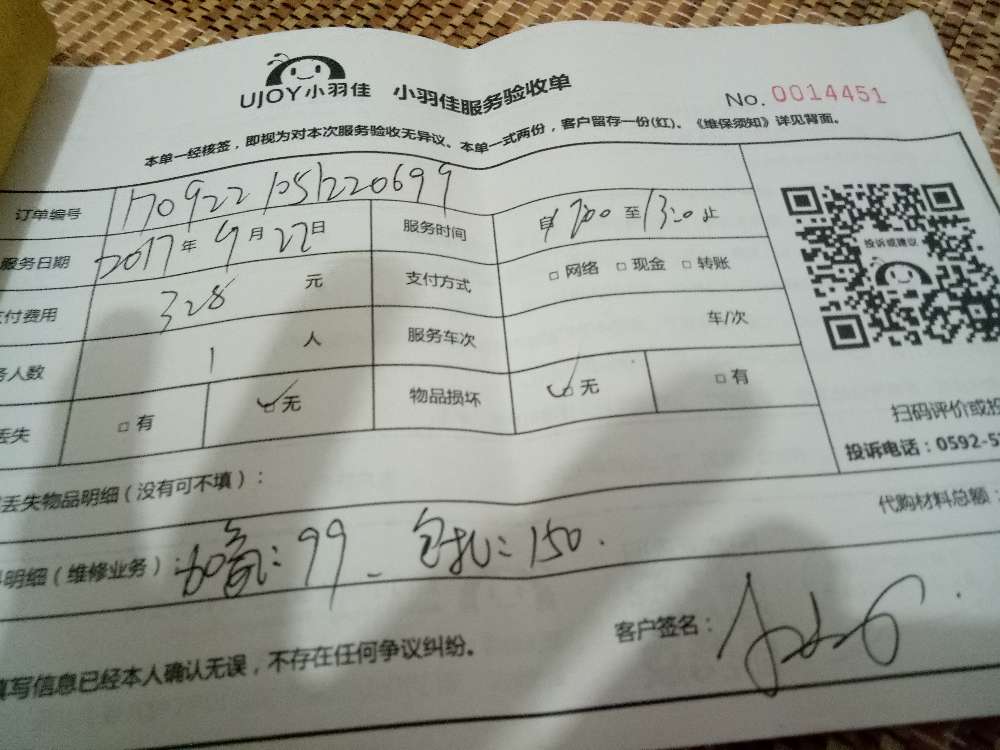 UJOY小羽佳 小羽佳服务验收单
No. 0014451
本单一经核签，即视为对本次服务验收无异议、本单一式两份，客户留存一份(红)、《维保须知》详见背面。
订单编号 1709221051220699
服务时间 自 1200 至 1320 止
服务日期 2017 年 9 月 22 日
支付方式 □ 网络 □ 现金 □ 转账
付费用 328 元
服务车次 车/次
务人数 1 人
丢失 □ 有 □ 无
物品损坏 □ 无 □ 有
投诉或建议
扫码评价或投
投诉电话：0592-5
丢失物品明细（没有可不填）：
代购材料总额：
明细（维修业务）：加氟：99 包扎：150.
客户签名：
填写信息已经本人确认无误，不存在任何争议纠纷。